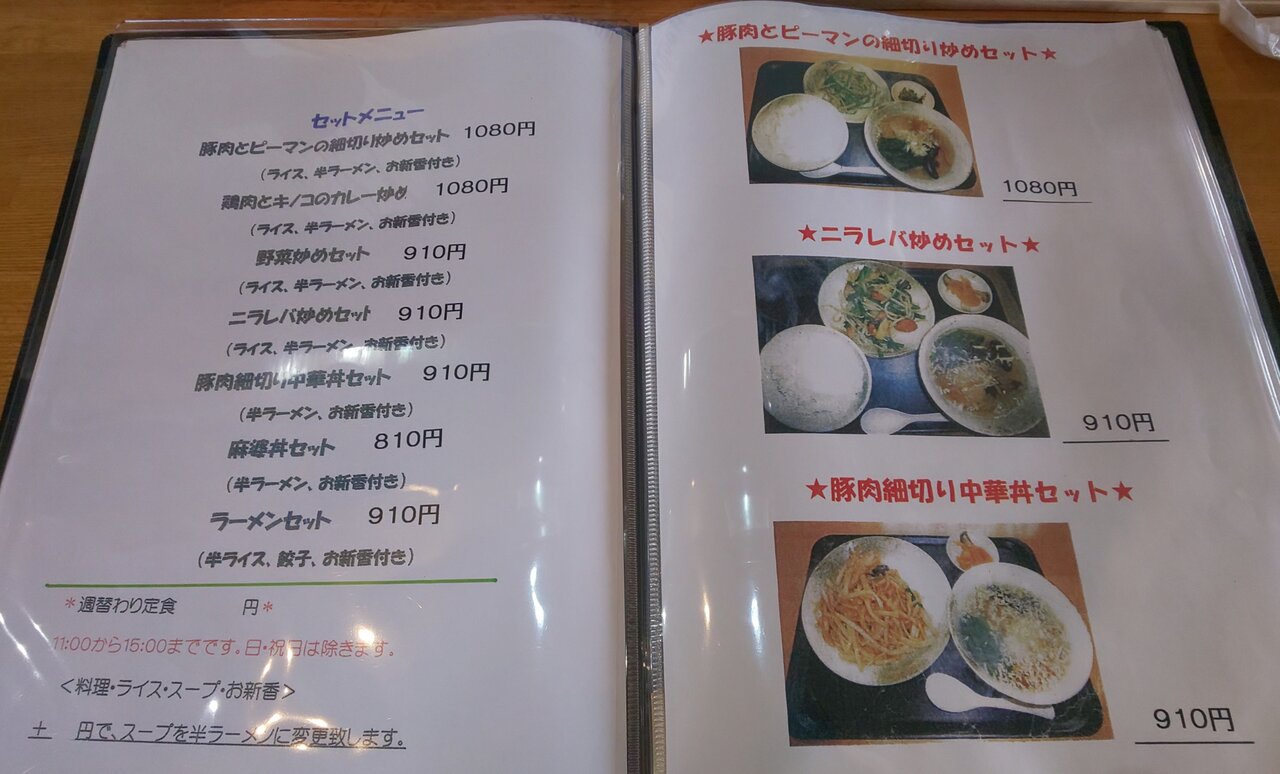 セットメニュー
豚肉とピーマンの細切り炒めセット 1080円
(ライス、半ラーメン、お新香付き)
鶏肉とキノコのカレー炒め 1080円
(ライス、半ラーメン、お新香付き)
野菜炒めセット 910円
(ライス、半ラーメン、お新香付き)
ニラレバ炒めセット 910円
(ライス、半ラーメン、お新香付き)
豚肉細切り中華丼セット 910円
(半ラーメン、お新香付き)
麻婆丼セット 810円
(半ラーメン、お新香付き)
ラーメンセット 910円
(半ライス、餃子、お新香付き)
*週替わり定食 円*
11:00から15:00までです。日・祝日は除きます。
<料理・ライス・スープ・お新香>
± 円で、スープを半ラーメンに変更致します。
★豚肉とピーマンの細切り炒めセット★
1080円
★ニラレバ炒めセット★
910円
★豚肉細切り中華丼セット★
910円